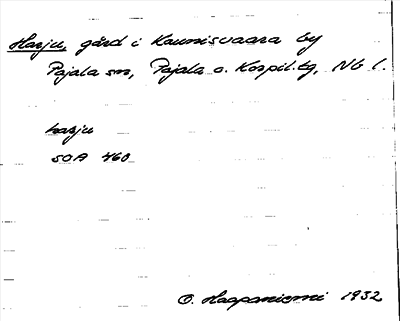 Harju, gård i Kaunisvaara by
Pajala sn, Pajala o. Korpil. tg, Nb l.
harju
SOA 460
O. Haapaniemi 1932